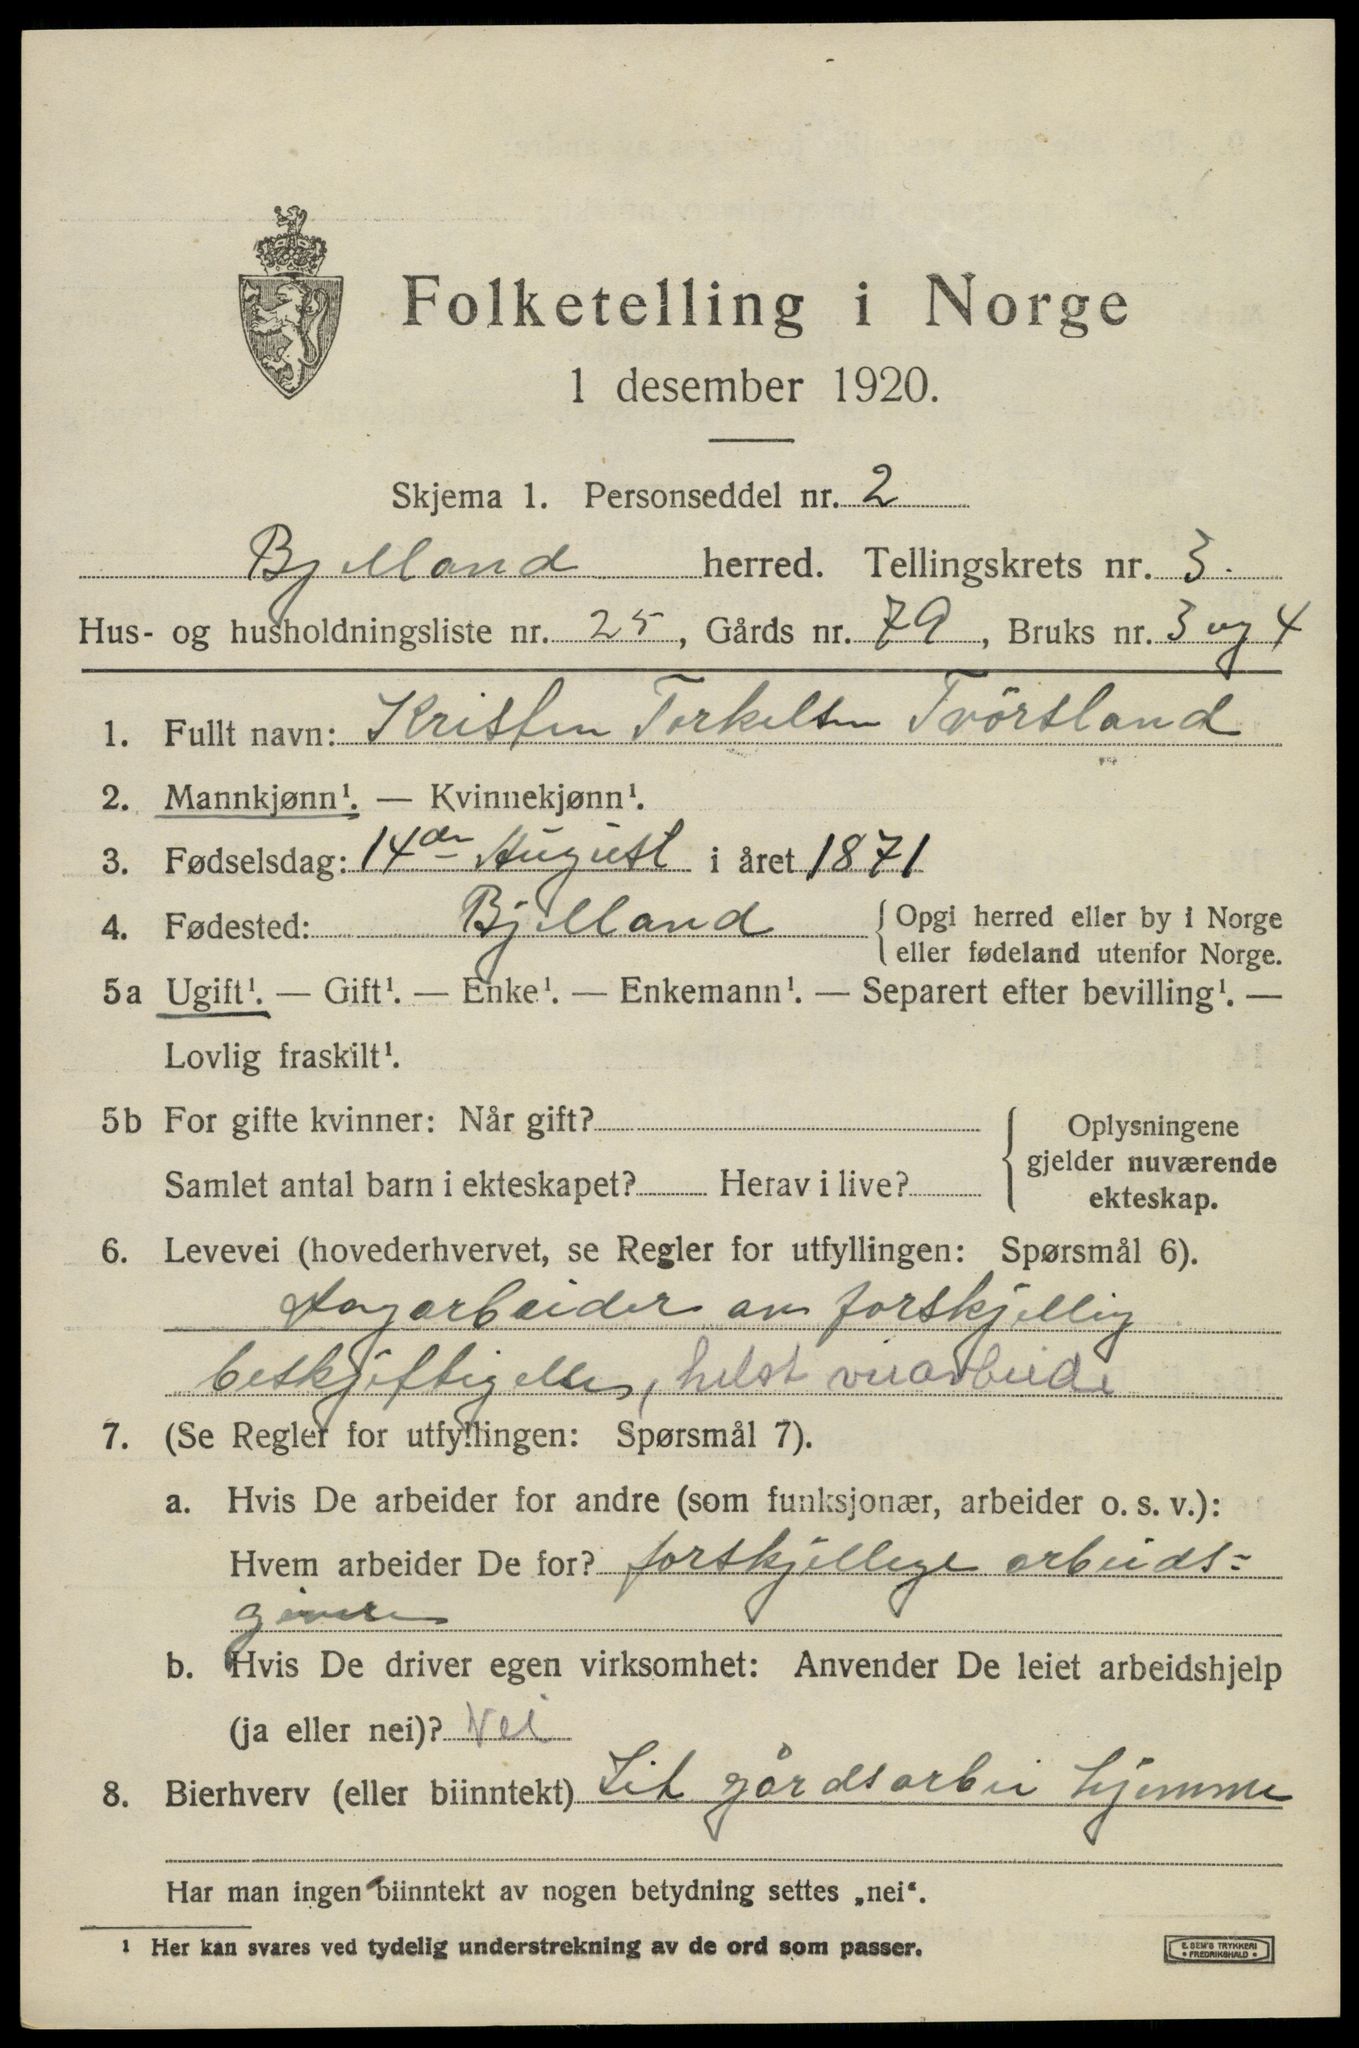 Folketelling i Norge
1 desember 1920.
Skjema 1. Personseddel nr. 2
Bjelland herred. Tellingskrets nr. 3.
Hus- og husholdningsliste nr. 25, Gårds nr. 79, Bruks nr. 3 og 4
1. Fullt navn: Kristen Torkelsen Tvörsland
2. Mannkjønn¹. — Kvinnekjønn¹.
3. Fødselsdag: 14de August i året 1871
4. Fødested: Bjelland { Opgi herred eller by i Norge
eller fødeland utenfor Norge.
5a Ugift¹. — Gift¹. — Enke¹. — Enkemann¹. — Separert efter bevilling¹. —
Lovlig fraskilt¹.
5b For gifte kvinner: Når gift?
Samlet antal barn i ekteskapet? Herav i live?
{ Oplysningene
gjelder nuværende
ekteskap.
6. Levevei (hovederhvervet, se Regler for utfyllingen: Spørsmål 6).
Dagarbeider av forskjellig
beskjeftigelse, helst veiarbeide
7. (Se Regler for utfyllingen: Spørsmål 7).
a. Hvis De arbeider for andre (som funksjonær, arbeider o. s. v.):
Hvem arbeider De for? forskjellige arbeids-
givere
b. Hvis De driver egen virksomhet: Anvender De leiet arbeidshjelp
(ja eller nei)? Nei
8. Bierhverv (eller biinntekt) Lit gårdsarbei hjemme
Har man ingen biinntekt av nogen betydning settes „nei“.
¹ Her kan svares ved tydelig understrekning av de ord som passer.
E. SEM'S TRYKKERI
• FREDRIKSHALD •